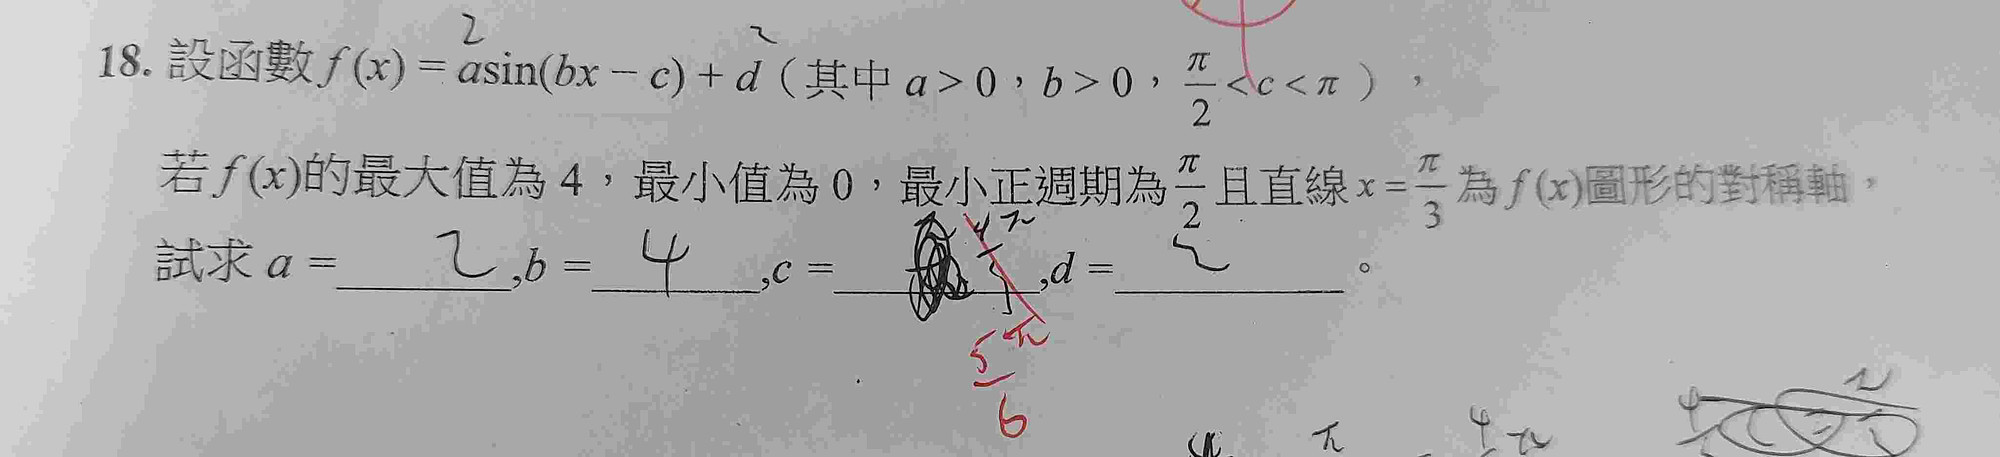 2 2
18. 設函數 f(x) = asin(bx − c) + d（其中 a > 0，b > 0，π/2 < c < π），
若 f(x)的最大值為 4，最小值為 0，最小正週期為 π/2 且直線 x = π/3 為 f(x)圖形的對稱軸，
試求 a = 2 ,b = 4 ,c = ,d = 2 。
5π/6
π